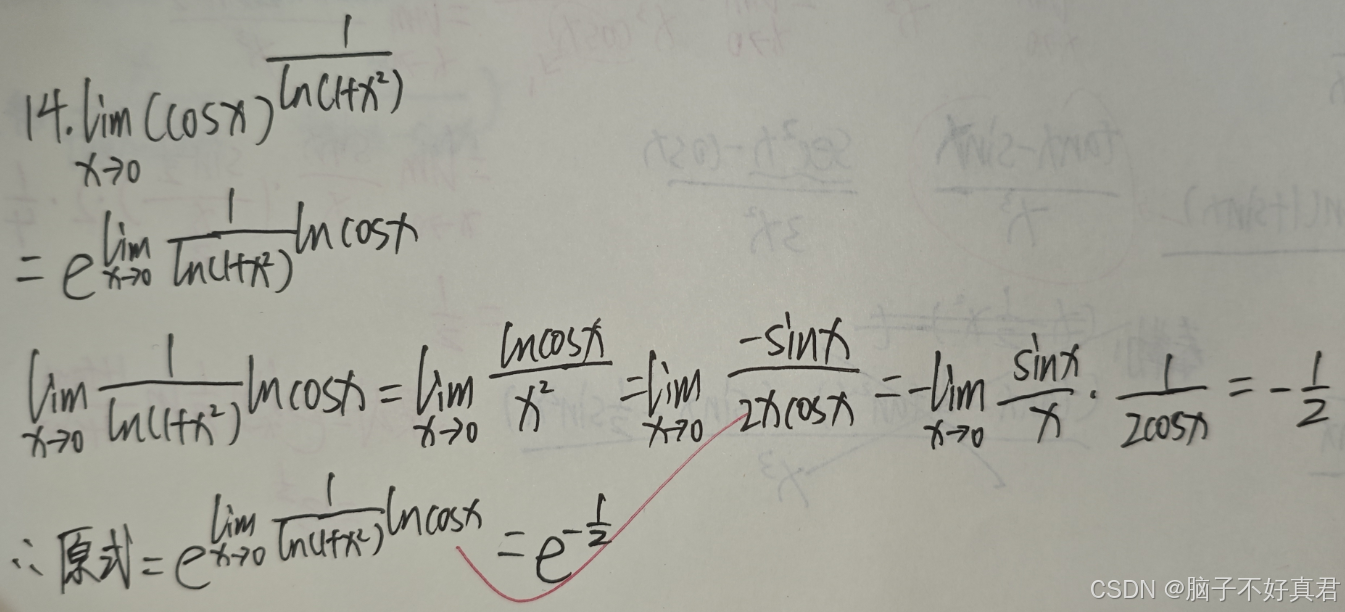 14. lim_{x→0} (cosx)^{\frac{1}{ln(1+x²)}}
= e^{lim_{x→0} \frac{1}{ln(1+x²)} lncosx}
lim_{x→0} \frac{1}{ln(1+x²)} lncosx = lim_{x→0} \frac{lncosx}{x²} = lim_{x→0} \frac{-sinx}{2xcosx} = -lim_{x→0} \frac{sinx}{x} · \frac{1}{2cosx} = -\frac{1}{2}
∴原式 = e^{lim_{x→0} \frac{1}{ln(1+x²)} lncosx} = e^{-\frac{1}{2}}
CSDN @脑子不好真君